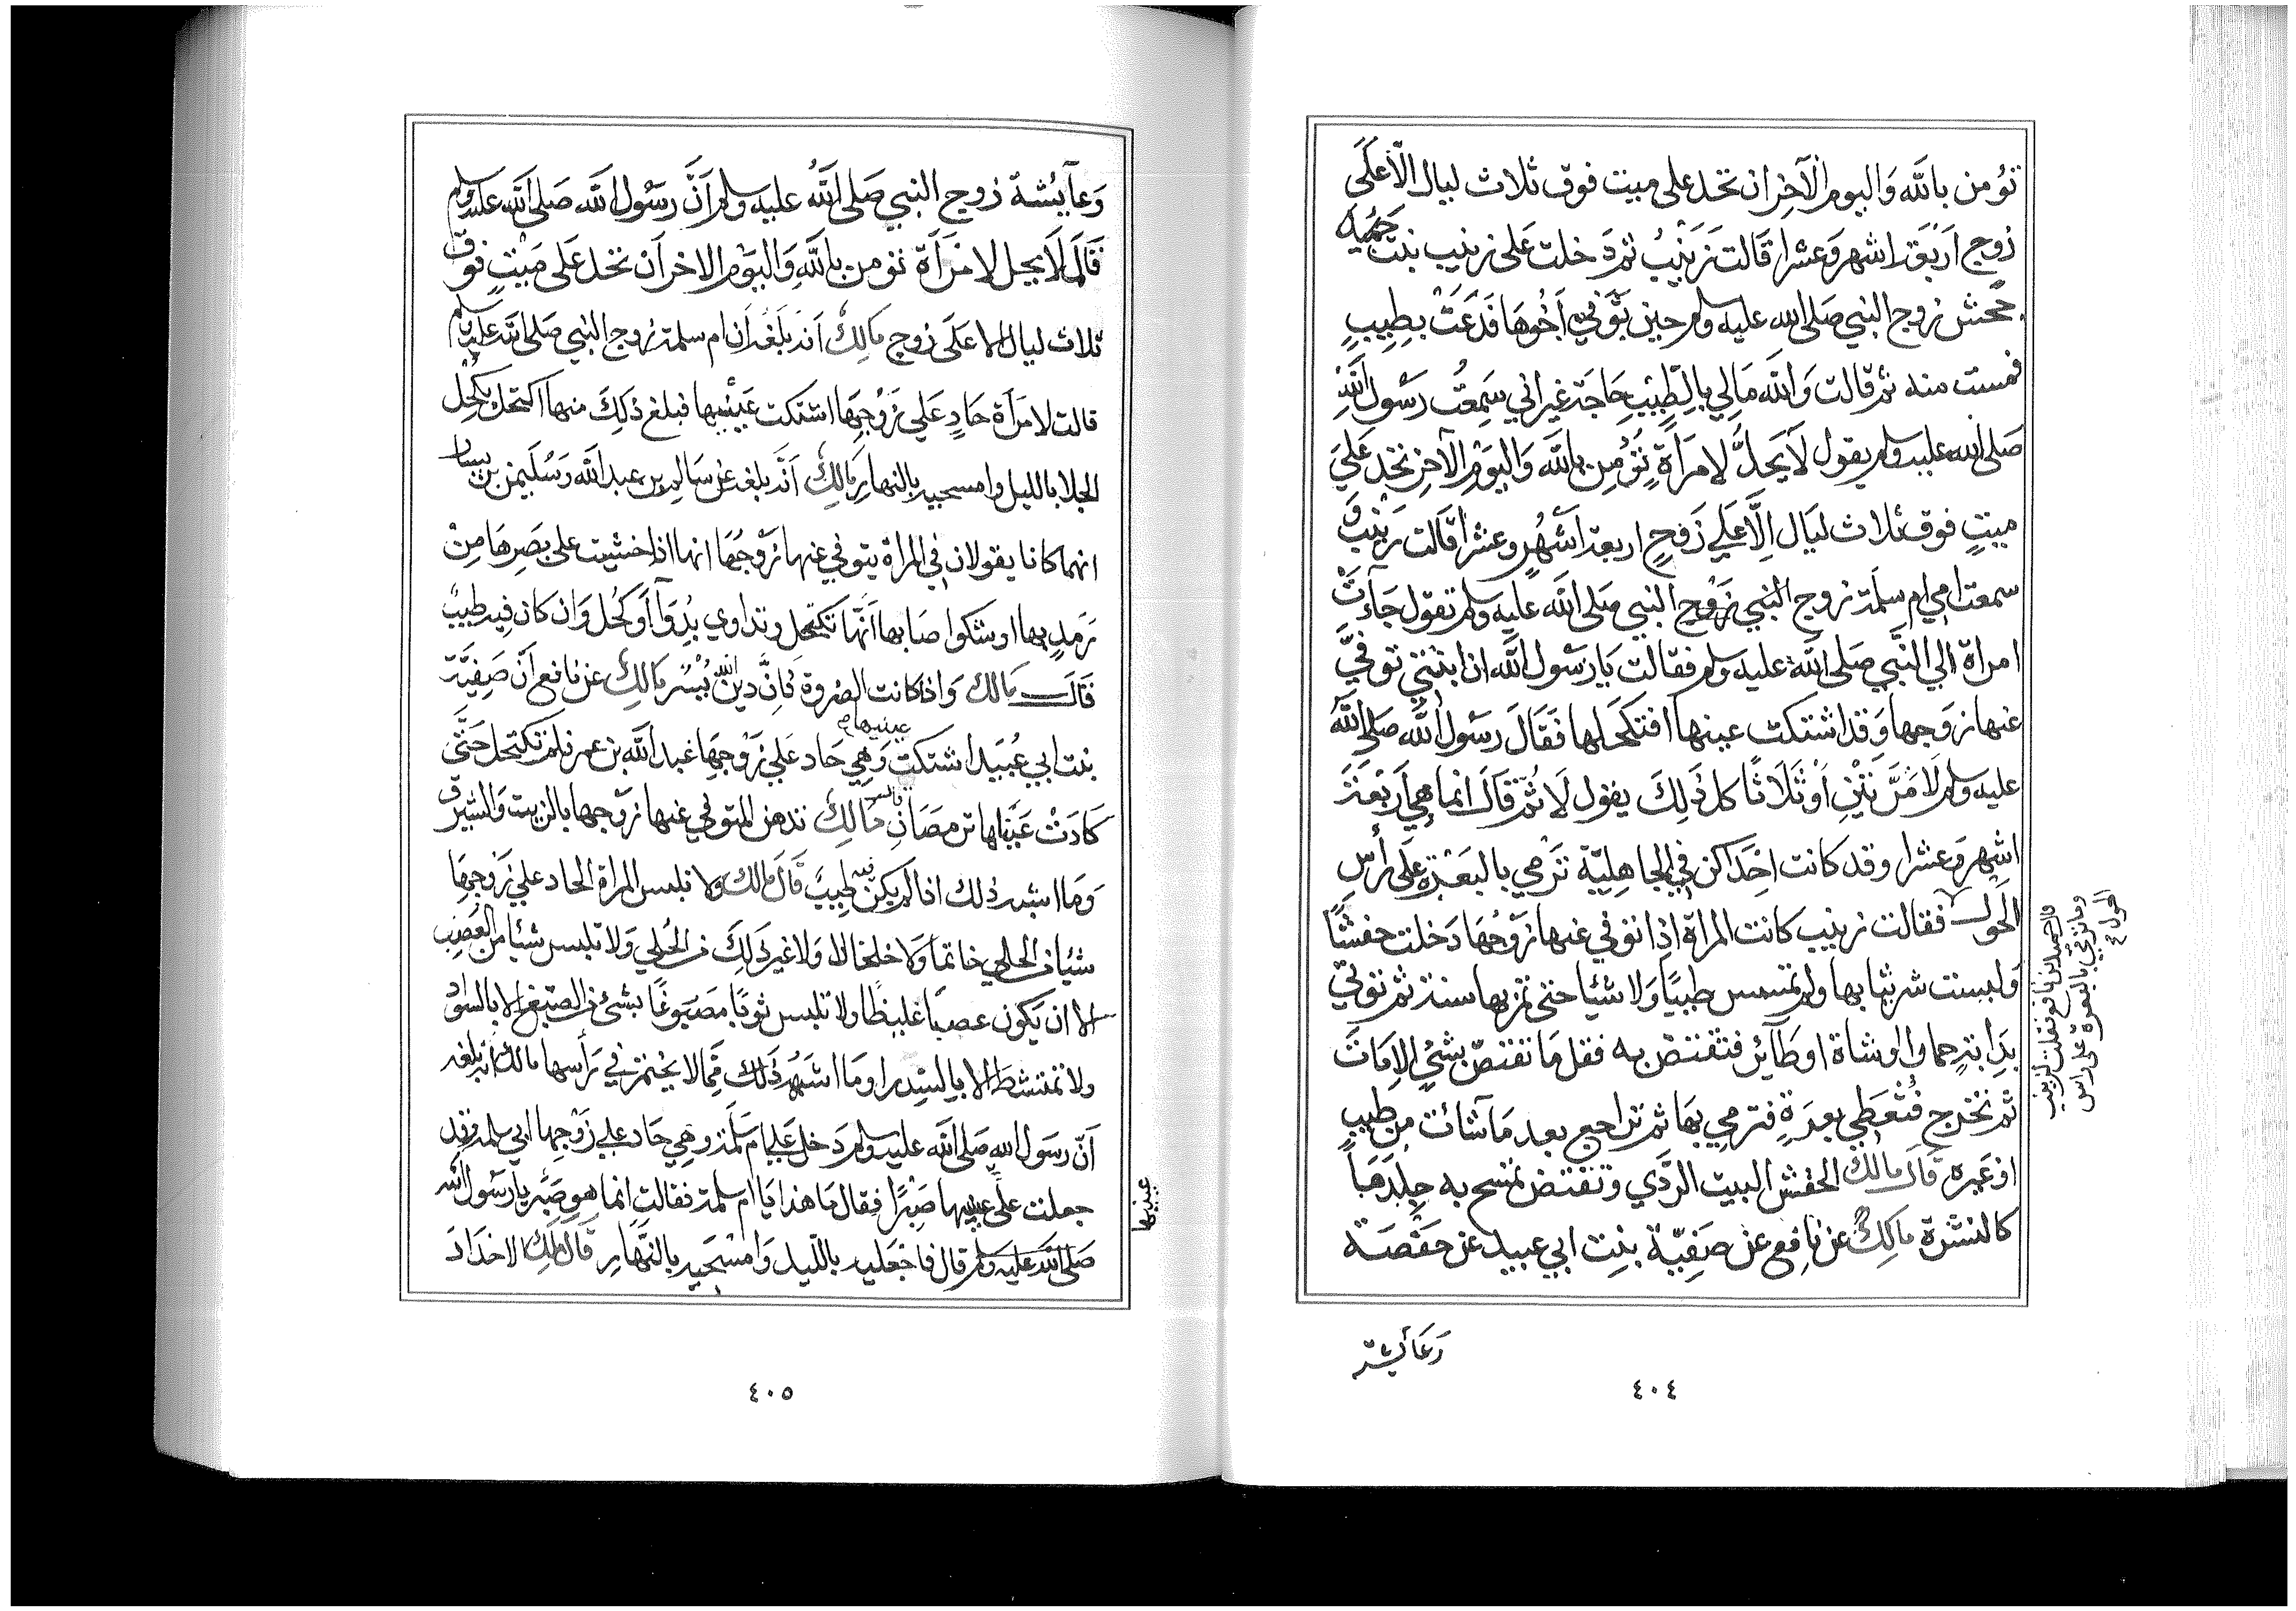 تؤمن بالله واليوم الآخر ان تحد على ميت فوق ثلاث ليال الّا على
زوج اربعة اشهر وعشرا قالت زينب ثم دخلت على زينب بنت
جحش زوج النبي صلى الله عليه وسلم حين توفي اخوها فدعت بطيب
فمست منه ثم قالت والله مالي بالطيب حاجة غير اني سمعت رسول الله
صلى الله عليه وسلم يقول لا يحل لامراة تؤمن بالله واليوم الآخر تحد على
ميت فوق ثلاث ليال الّا على زوج اربعة اشهر وعشرا قالت زينب و
سمعت امي ام سلمة زوج النبي زوج النبي صلى الله عليه وسلم تقول جاءت
امراة الي النبي صلى الله عليه وسلم فقالت يا رسول الله ان ابنتي توفي
عنها زوجها وقد اشتكت عينها افتكحلها فقال رسول الله صلى الله
عليه وسلم لا مرتين او ثلاثا كل ذلك يقول لا ثم قال انما هي اربعة
اشهر وعشرا وقد كانت احداكن في الجاهلية ترمي بالبعرة على رأس
الحول فقالت زينب كانت المراة اذا توفي عنها زوجها دخلت حفشا
ولبست شر ثيابها ولم تمسس طيبا ولا شيا حتى تمر بها سنة ثم توتي
بدابة حمار او شاة او طآئر فتفتض به فقل ما تفتض بشئ الا مات
ثم تخرج فتعطي بعرة فترمي بها ثم تراجع بعد ما شائت من طيب
او غيره قال مالك الحفش البيت الردي وتفتض تمسح به جلدها
كالنشرة مالك عن نافع عن صفية بنت ابي عبيد عن حفصة
قال حميد بن نافع فقلت لزينب
وما ترمي بالبعرة على راس
الحول
وعائشة
٤٠٤
وعآيشة زوج النبي صلى الله عليه وسلم انّ رسول الله صلى الله عليه وسلم
قال لا يحل لامراة تؤمن بالله واليوم الاخر ان تحد على ميت فوق
ثلاث ليال الا على زوج مالك انه بلغه ان ام سلمة زوج النبي صلى الله عليه وسلم
قالت لامراة حاد علي زوجها اشتكت عينيها فبلغ ذلك منها اكتحلي بكحل
الجلا بالليل وامسحيه بالنهار مالك انه بلغه عن سالم بن عبد الله وسليمن بن يسار
انهما كانا يقولان في المراة يتوفي عنها زوجها انها اذا خشيت على بصرها من
رمد بها او شكوا صابها انها تكتحل وتداوي بدوآ او كحل وان كان فيه طيب
قال مالك واذا كانت الضروة فان دين الله يسر مالك عن نافع ان صفية
بنت ابي عبيد اشتكت عينيها وهي حاد علي زوجها عبد الله بن عمر فلم تكتحل حتى
كادت عيناها ترمصان مالك تدهن المتوفي عنها زوجها بالزيت والشبرق
وما اشبه ذلك اذا لم يكن فيه طيب قال مالك ولا تلبس المراة الحاد علي زوجها
شيا من الحلي خاتما ولا خلخالا ولا غير ذلك من الحلي ولا تلبس شيا من العصب
الا ان يكون عصبا غليظا ولا تلبس ثوبا مصبوغا بشئ من الصبغ الا بالسواد
ولا تمتشط الا بالسدر او ما اشبه ذلك مما لا يختمر في رأسها مالك انه بلغه
انّ رسول الله صلى الله عليه وسلم دخل على ام سلمة وهي حاد علي زوجها ابي سلمة وقد
جعلت على عينيها صبرا فقال ما هذا يا ام سلمة فقالت انما هو صبر يا رسول الله
صلى الله عليه وسلم قال فاجعليه بالليل وامسحيه بالنهار قال مالك الاحداد
عينيها
٤٠٥